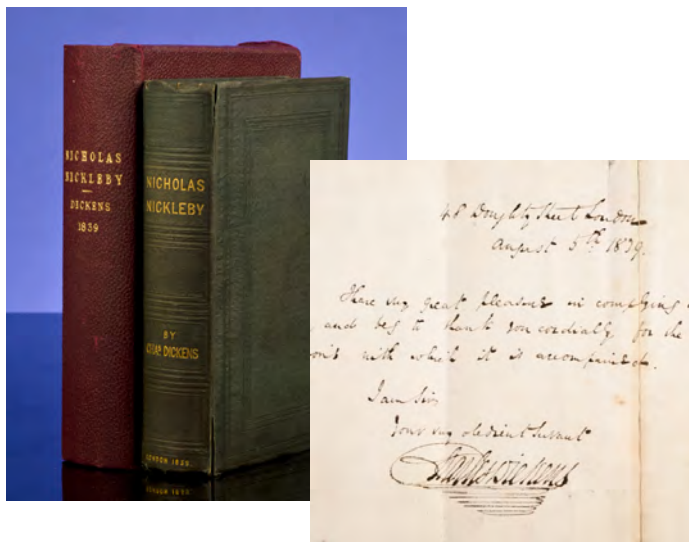 NICHOLAS
NICKLEBY
DICKENS
1839
NICHOLAS
NICKLEBY
BY
CHAS. DICKENS
LONDON 1839.
48 Doughty Street London
August 5th 1839.
I have very great pleasure in complying
and beg to thank you cordially for the
with which it is accompanied.
I am Sir
Your very obedient Servant
Charles Dickens